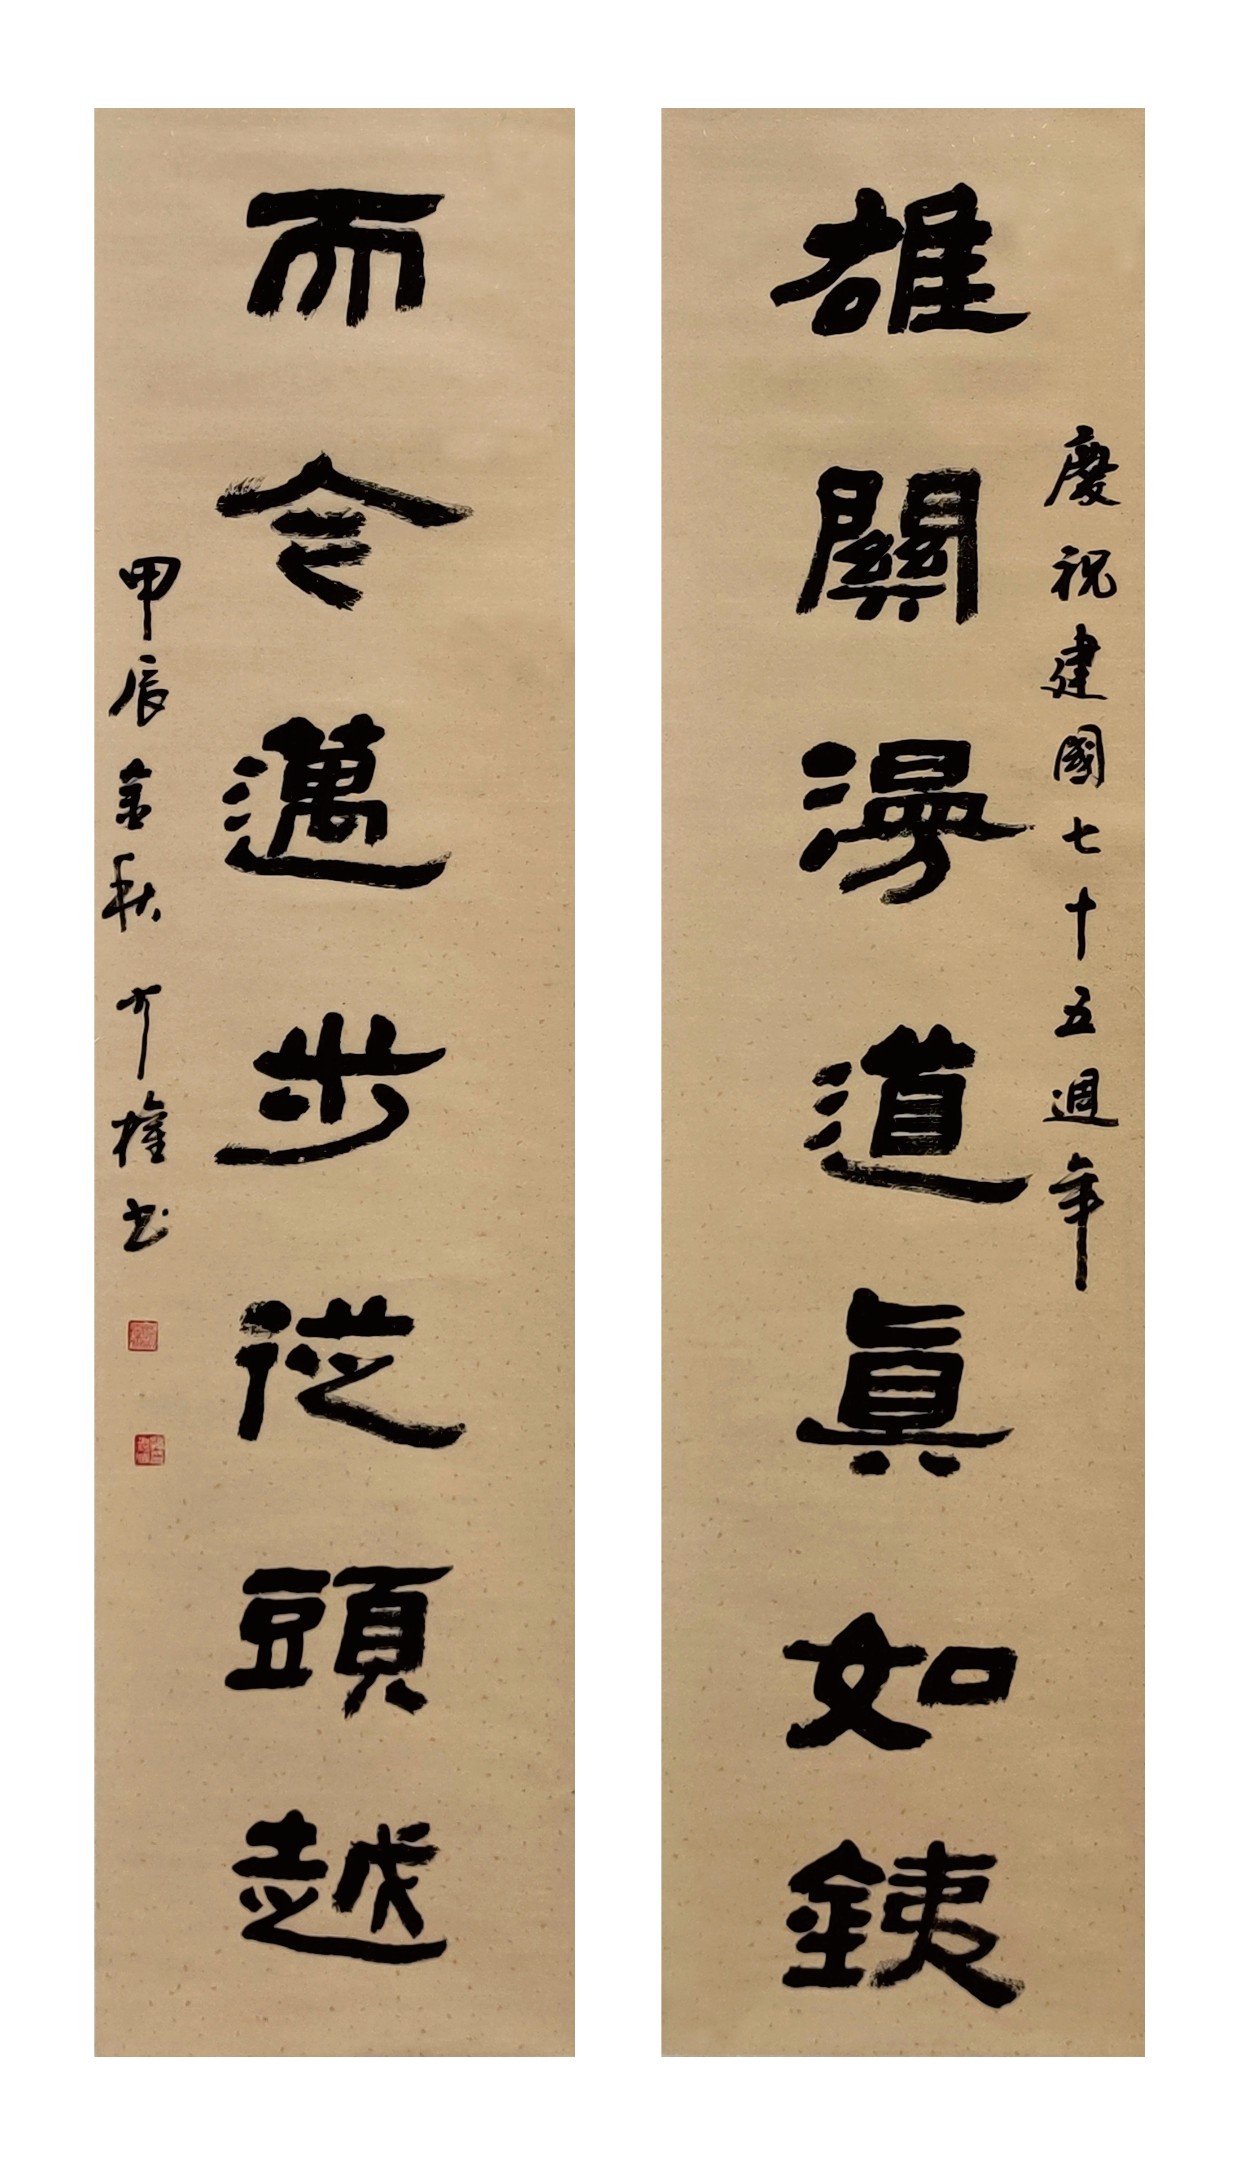 慶祝建國七十五週年
雄關漫道眞如銕
而今邁步從頭越
甲辰金秋
權書